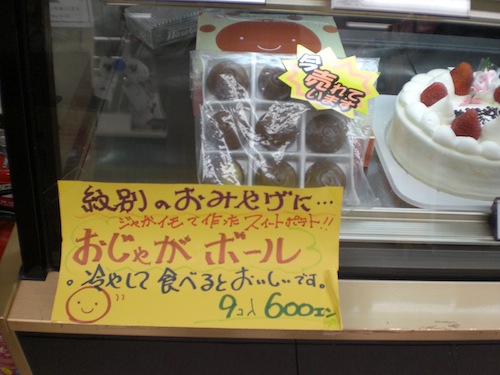 今
売れて
います
紋別のおみやげに…
ジャガイモで作ったスイートポテト!!
おじゃがボール
。冷やして食べるとおいしいです。
9コ入 600エン